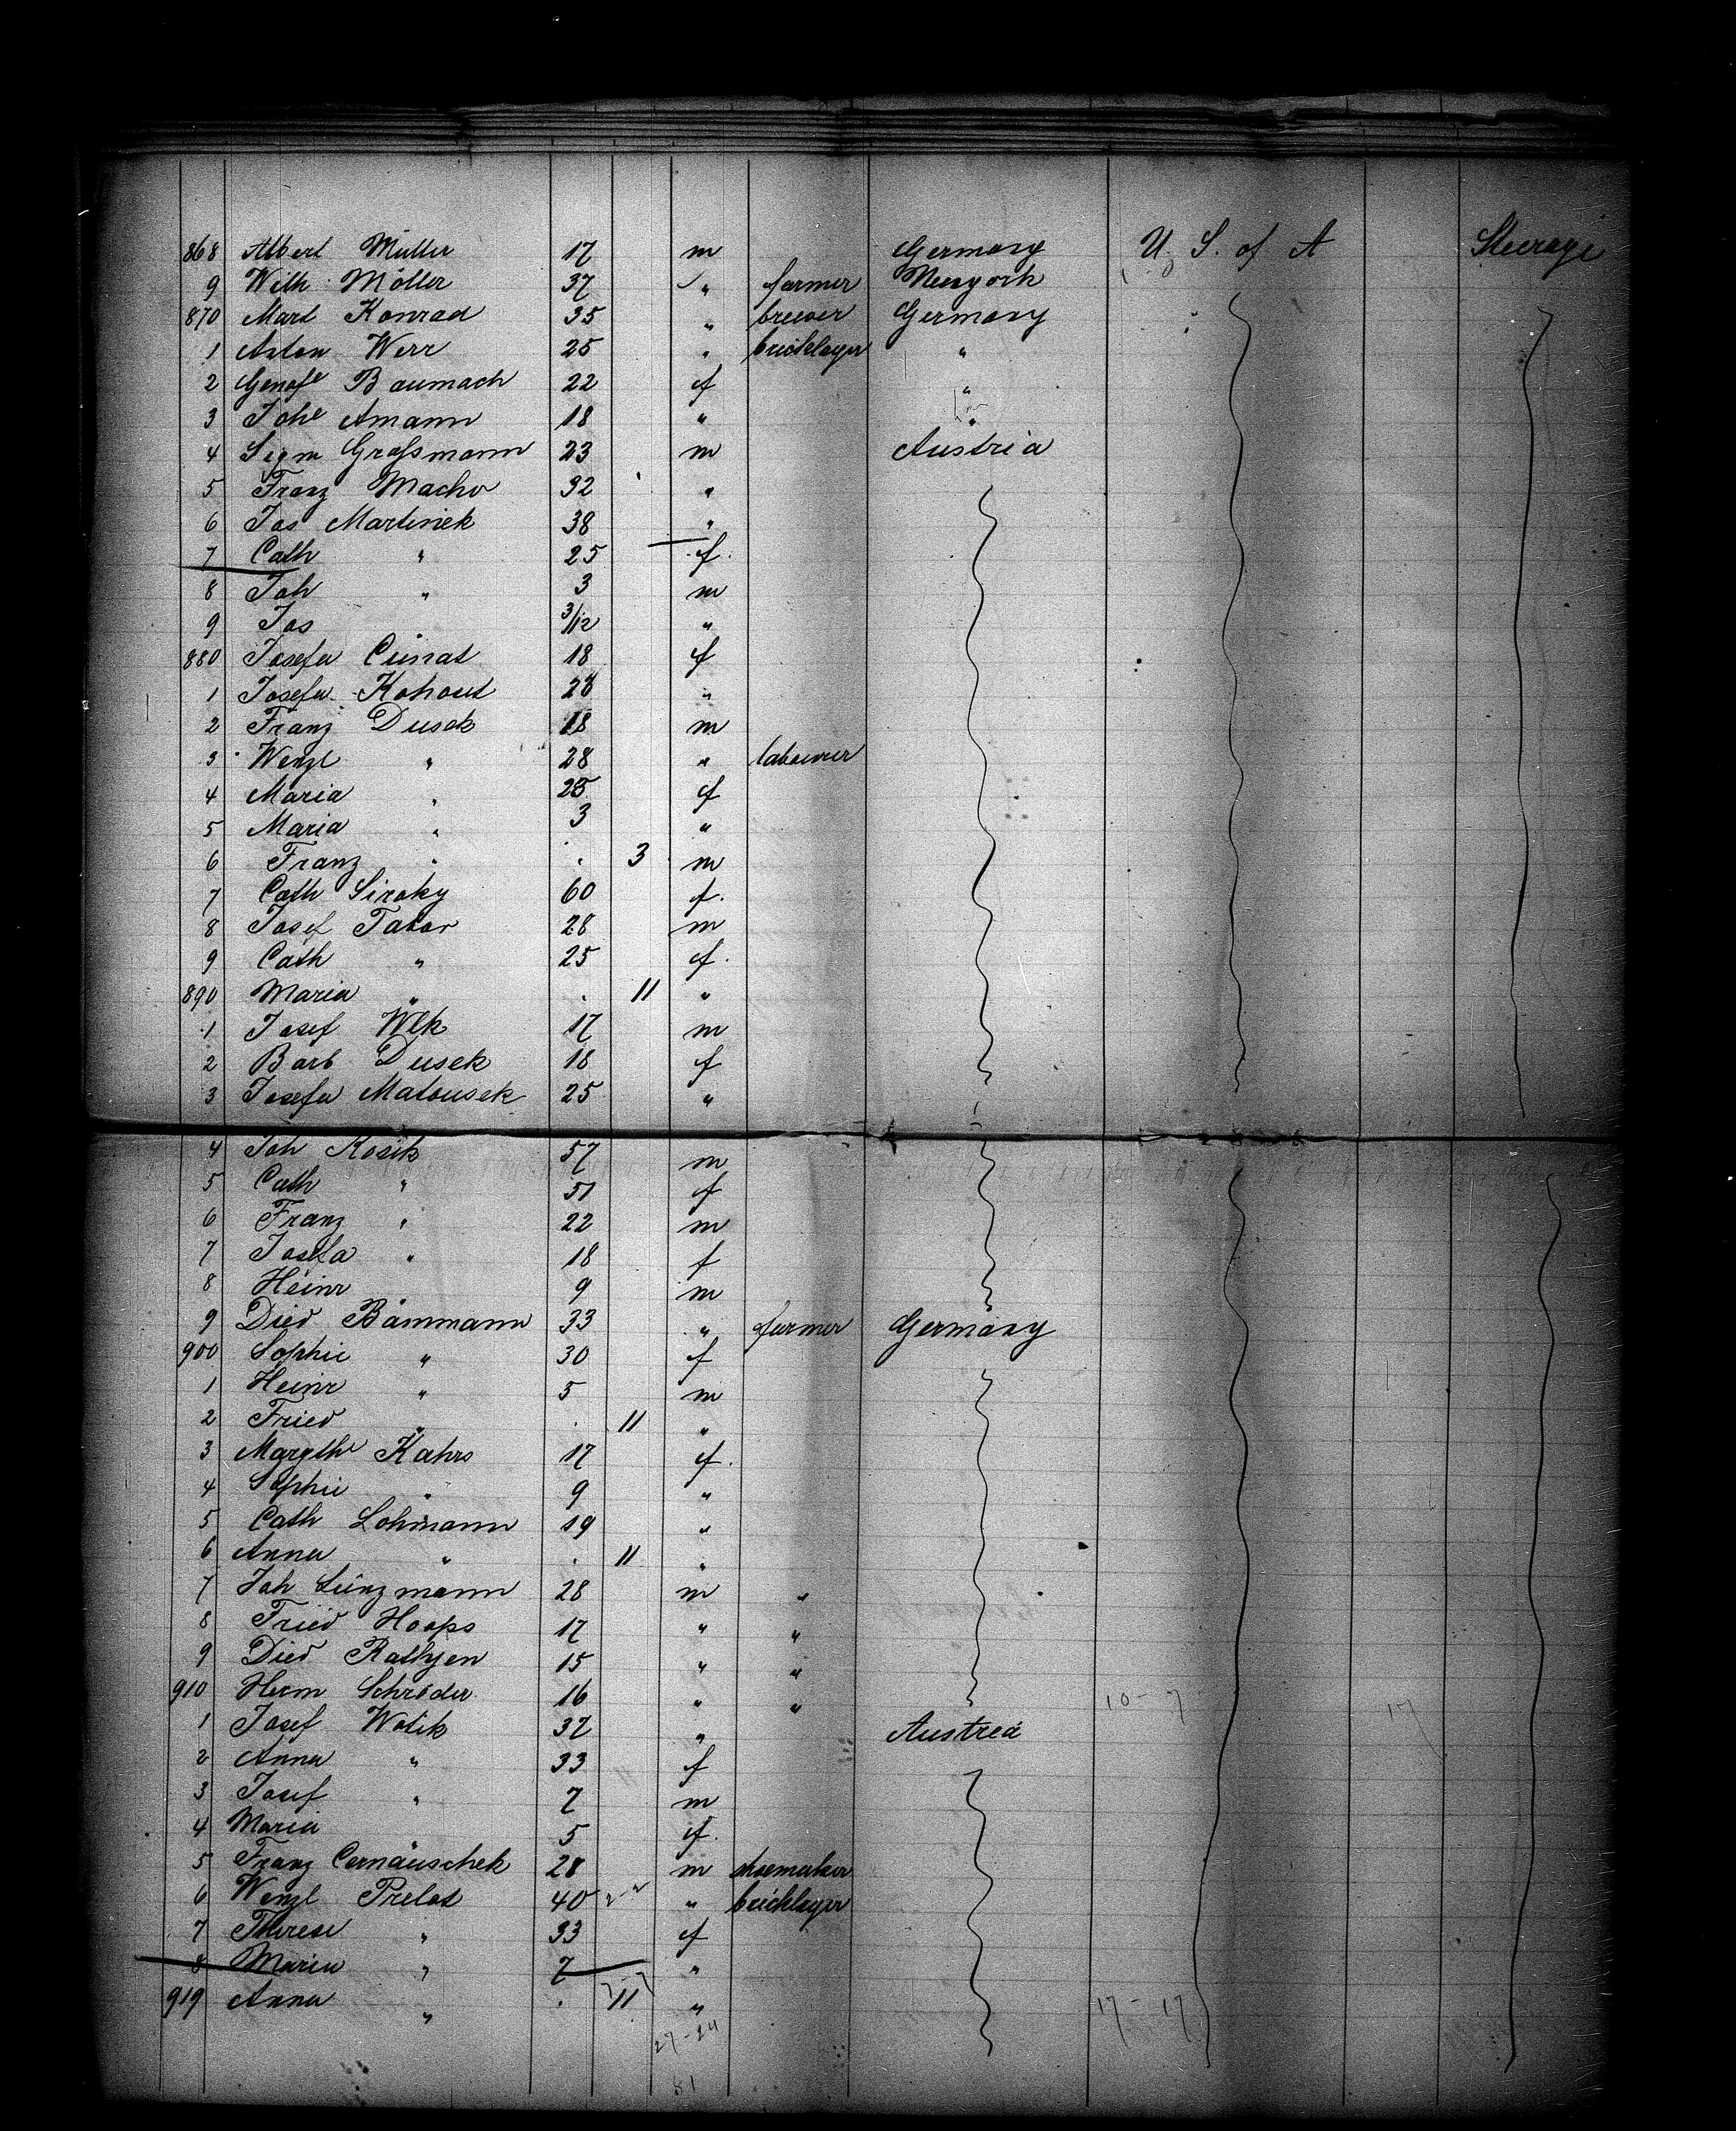 868 Albert Müller 17 m Germany U. S. of A Steerage
9 Wilh. Möller 37 " farmer Newyork
870 Mart Konrad 35 " brewer Germany
1 Anton Werr 25 " bricklayer "
2 Genofe Baumach 22 f "
3 Johe Amann 18 " "
4 Sigm Grossmann 23 m Austria
5 Franz Macho 32 "
6 Jos Martinek 38 "
7 Cath " 25 f.
8 Joh " 3 m
9 Jos " 3/12 "
880 Josefa Cunat 18 f
1 Josefa Kohout 28 "
2 Franz Dusek 18 m
3 Wenzl " 28 " labourer
4 Maria " 25 f
5 Maria " 3 "
6 Franz " . 3 m
7 Cath Siroky 60 f.
8 Josef Tabor 28 m
9 Cath " 25 f.
890 Maria " . 11 "
1 Josef Wlk 17 m
2 Barb Dusek 18 f
3 Josefa Matousek 25 "
4 Joh Kosik 57 m
5 Cath " 51 f
6 Franz " 22 m
7 Josefa " 18 f
8 Heinr " 9 m
9 Died Bammann 33 " farmer Germany
900 Sophie " 30 f
1 Heinr " 5 m
2 Fried " . 11 "
3 Margthe Kahrs 17 f.
4 Sophie " 9 "
5 Cath Lohmann 19 "
6 Anna " . 11 "
7 Joh Lünzmann 28 m "
8 Fried Hoops 17 " "
9 Died Rathjen 15 " "
910 Herm Schröder 16 " " 10-7 17
1 Josef Wotik 37 " Austria
2 Anna " 33 f
3 Josef " 7 m
4 Maria 5 f.
5 Franz Cernauschek 28 m shoemaker
6 Wenzl Prelat 40 " bricklayer
7 Therese " 33 f
8 Maria " 7 "
919 Anna " . 11 " 17-17
27-24